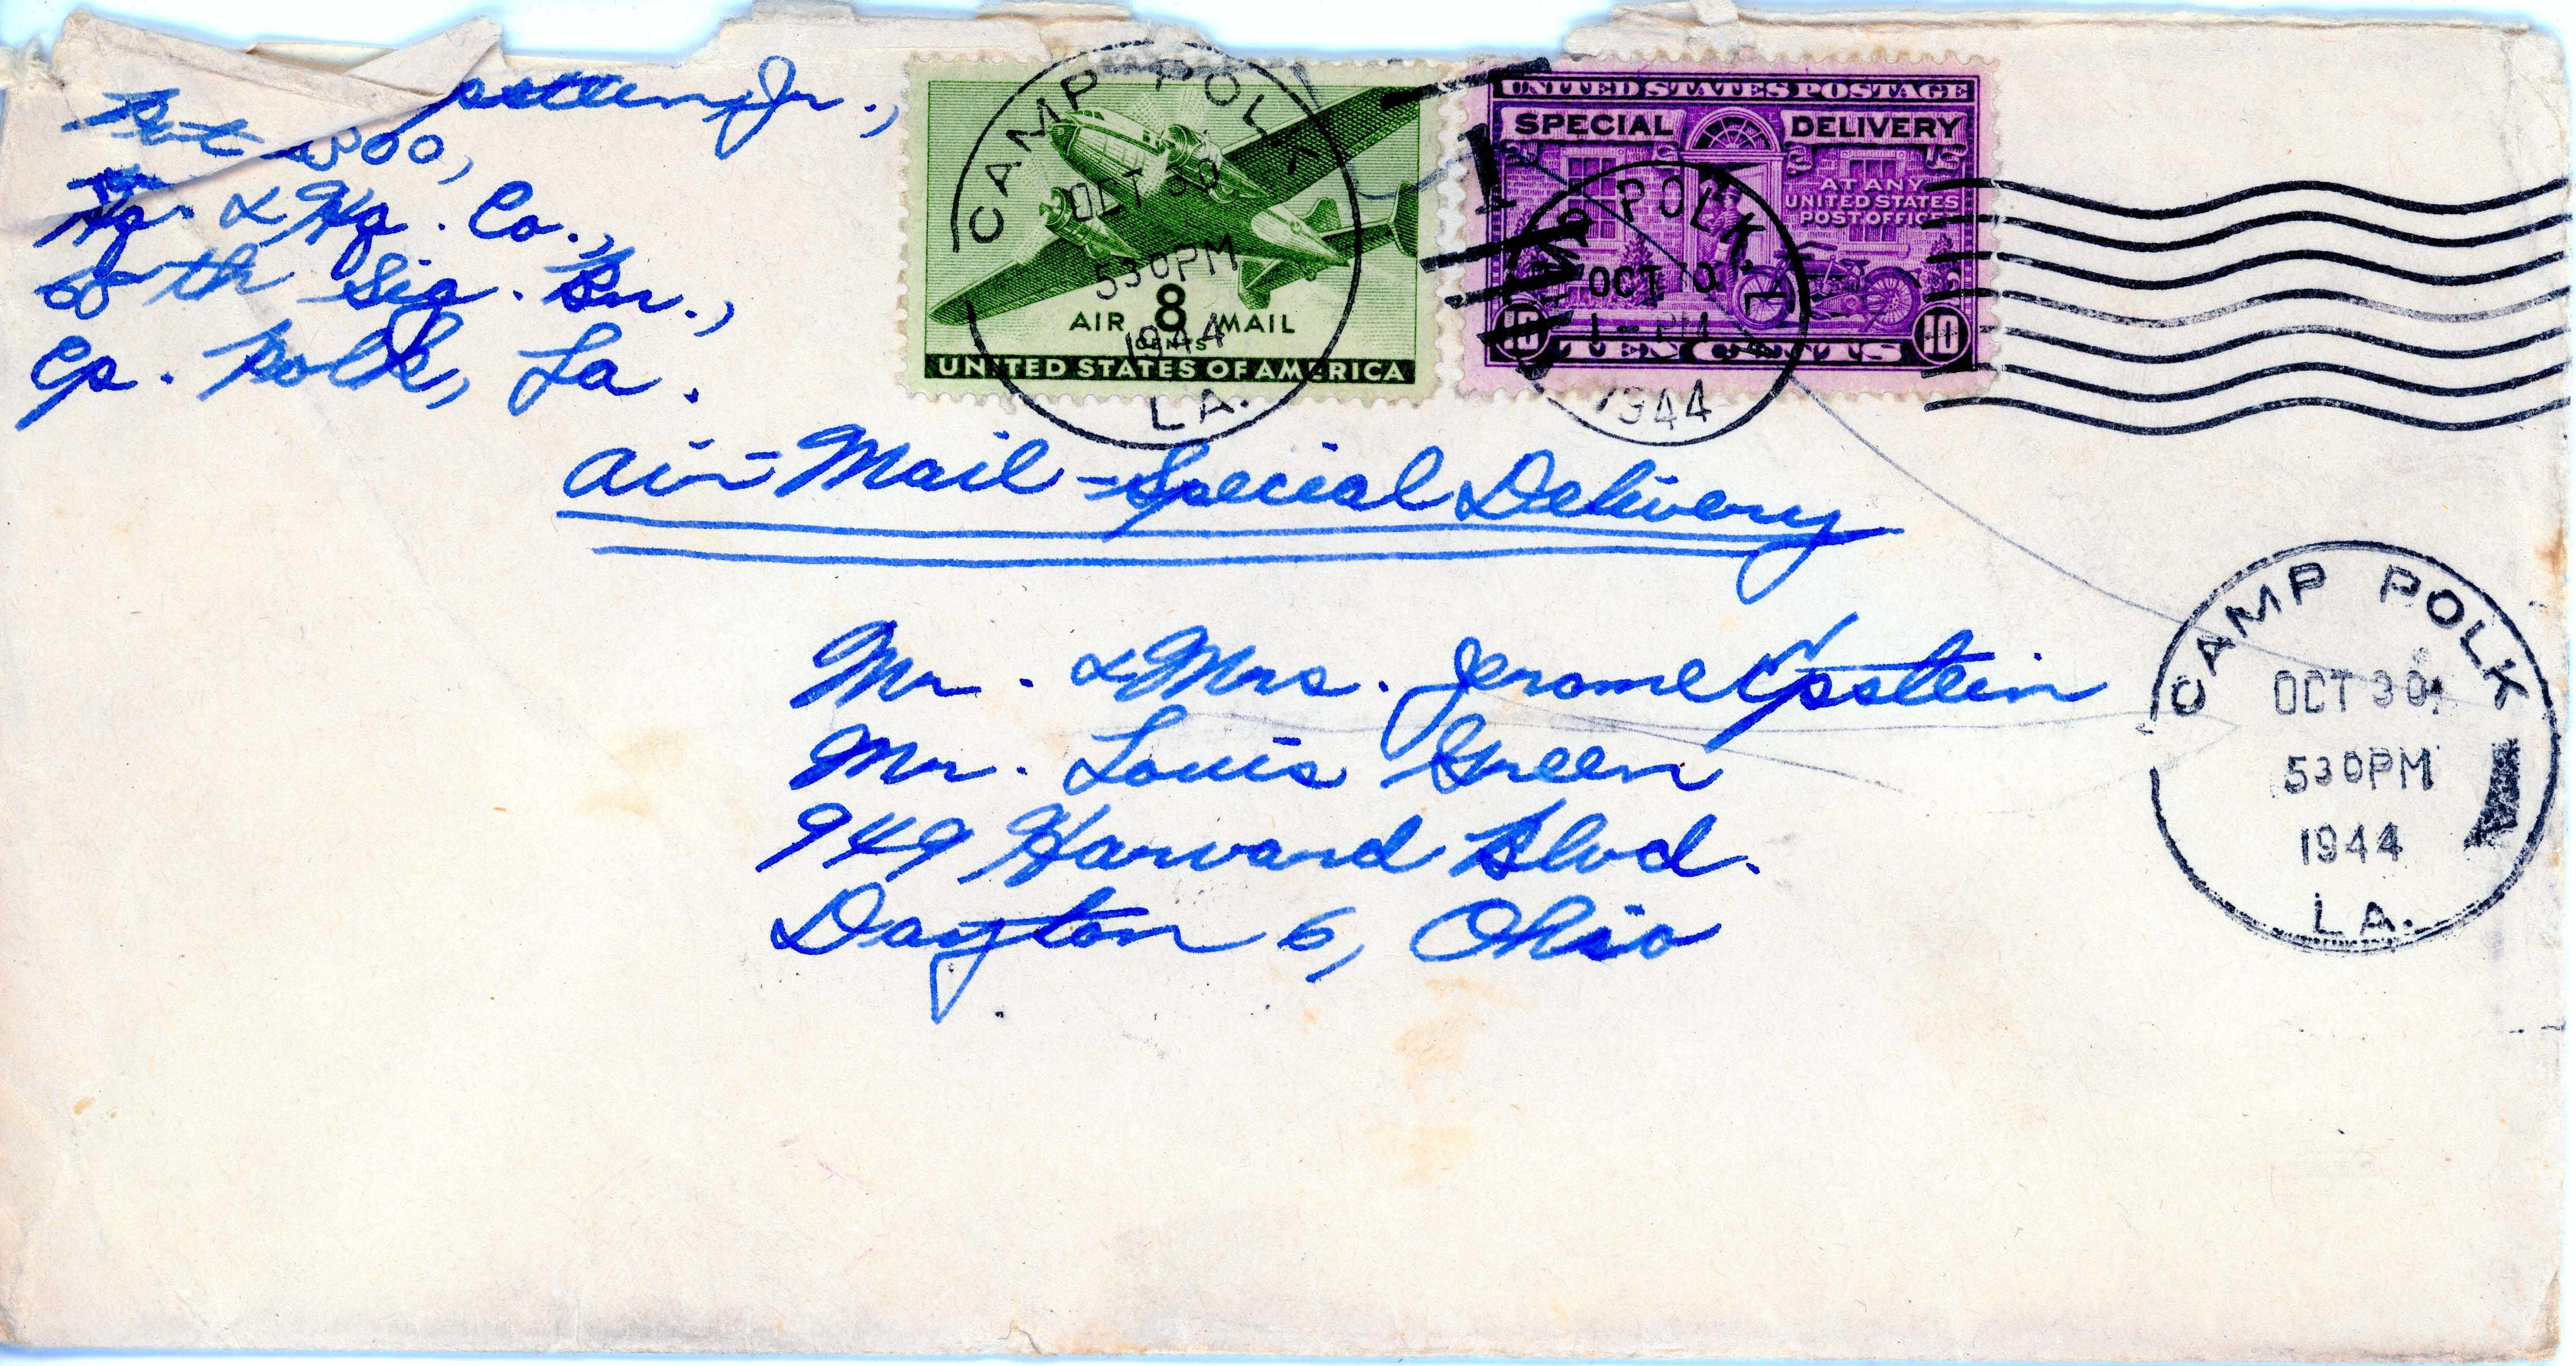 Jr.,
Hq. & Hq. Co.,
68th Sig. Bn.,
Cp. Polk, La.
CAMP POLK
OCT 30
530PM
1944
LA.
8
AIR MAIL
CENTS
UNITED STATES OF AMERICA
UNITED STATES POSTAGE
SPECIAL DELIVERY
AT ANY
UNITED STATES
POST OFFICE
10 TEN CENTS 10
POLK,
OCT
PM
1944
Air-Mail-Special Delivery
Mr. & Mrs. Jerome Epstein
Mr. Louis Green
949 Harvard Blvd.
Dayton 6, Ohio
CAMP POLK
OCT 30
530PM
1944
LA.